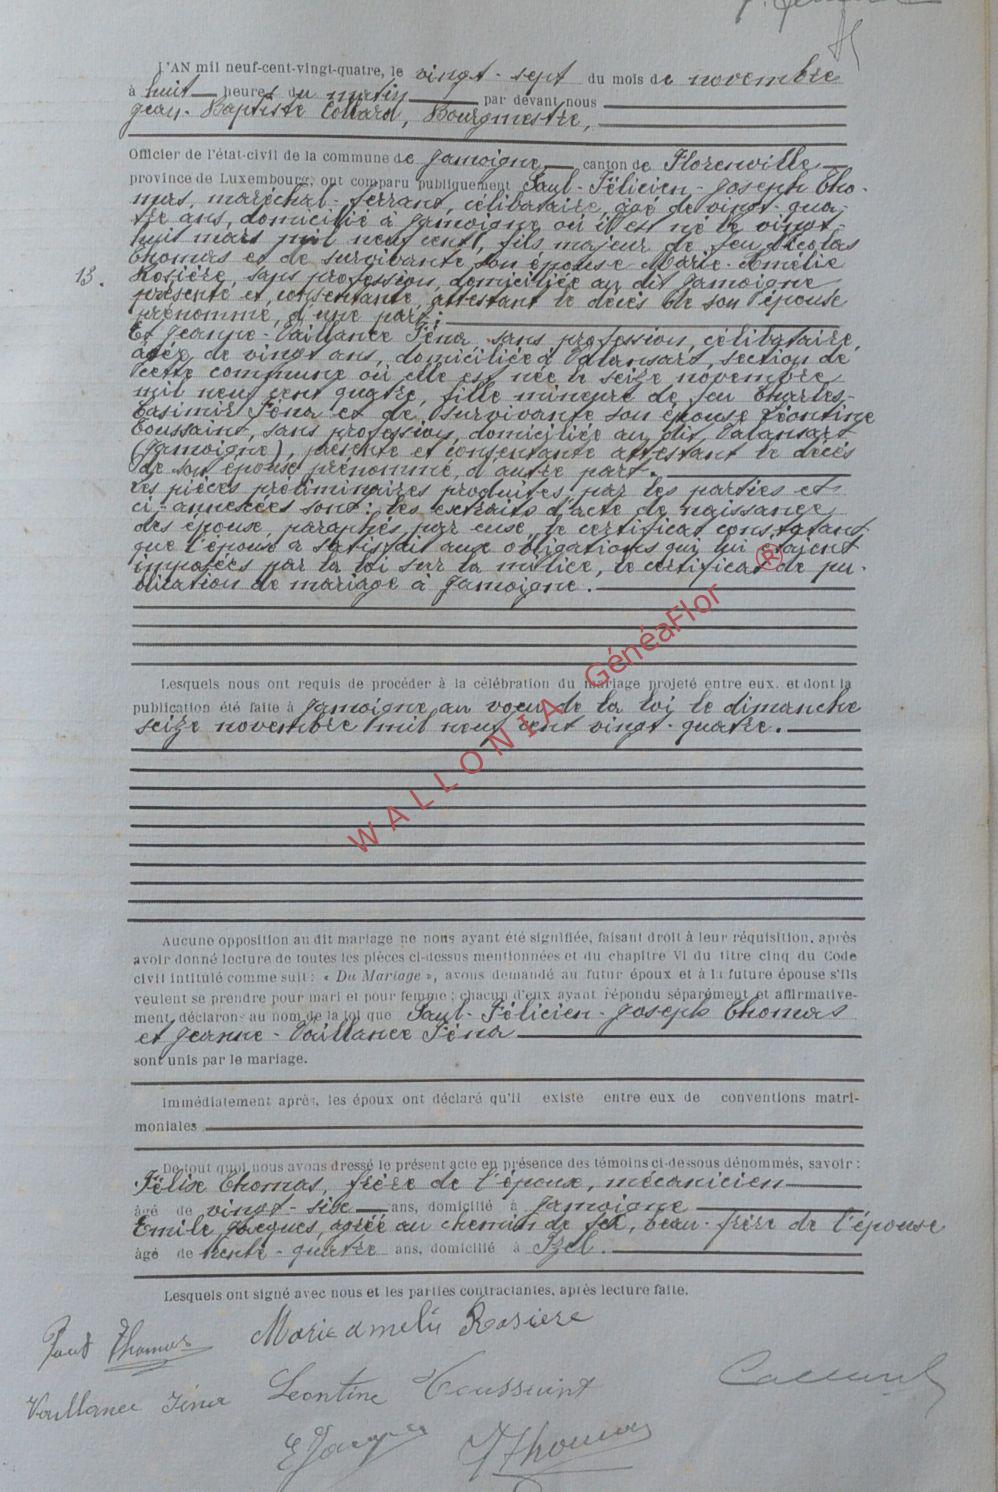 L'AN mil neuf-cent-vingt-quatre, le vingt-sept du mois de novembre
à huit heures du matin par devant nous
Jean-Baptiste Collard, Bourgmestre,
Officier de l'état-civil de la commune de Jamoigne canton de Florenville
province de Luxembourg, ont comparu publiquement Paul-Félicien-Joseph Tho-
mas, maréchal-ferrant, célibataire, âgé de vingt-qua-
tre ans, domicilié à Jamoigne où il est né le vingt-
huit mars mil neuf cent, fils majeur de feu Nicolas
Thomas et de survivante son épouse Marie-Amélie
13. Rosière, sans profession, domiciliée au dit Jamoigne
présente et consentante, attestant le décès de son épouse
prénommé, d'une part;
Et Jeanne-Vaillance Féna sans profession, célibataire,
âgée de vingt ans, domiciliée à Valansart, section de
cette commune où elle est née le seize novembre
mil neuf cent quatre, fille mineure de feu Charles-
Casimir Féna et de survivante son épouse Léontine
Toussaint, sans profession, domiciliée au dit Valansart
(Jamoigne), présente et consentante attestant le décès
de son épouse prénommé, d'autre part.
Les pièces préliminaires produites par les parties et
ci-annexées sont: les extraits d'acte de naissance
des épouse, paraphés par euse, le certificat constatant
que l'épouse a satisfait aux obligations qui lui étaient
imposées par la loi sur la milice, le certificat de pu-
blication de mariage à Jamoigne.
Lesquels nous ont requis de procéder à la célébration du mariage projeté entre eux. et dont la
publication été faite à Jamoigne au vœu de la loi le dimanche
seize novembre mil neuf cent vingt-quatre.
Aucune opposition au dit mariage ne nous ayant été signifiée, faisant droit à leur réquisition, après
avoir donné lecture de toutes les pièces ci-dessus mentionnées et du chapitre VI du titre cinq du Code
civil intitulé comme suit : « Du Mariage », avons demandé au futur époux et à la future épouse s'ils
veulent se prendre pour mari et pour femme ; chacun d'eux ayant répondu séparément et affirmative-
ment, déclarons au nom de la loi que Paul-Félicien-Joseph Thomas
et Jeanne-Vaillance Féna
sont unis par le mariage.
Immédiatement après, les époux ont déclaré qu'il existe entre eux de conventions matri-
moniales
De tout quoi nous avons dressé le présent acte en présence des témoins ci-dessous dénommés, savoir :
Félix Thomas, frère de l'époux, mécanicien
âgé de vingt-six ans, domicilié à Jamoigne
Emile Jacques, agréé au chemin de fer, beau-frère de l'épouse
âgé de trente-quatre ans, domicilié à Izel.
Lesquels ont signé avec nous et les parties contractantes, après lecture faite.
Paul Thomas Marie amelie Rosiere
Vaillance Féna Leontine Toussaint Collard
E Jacques F Thomas
WALLONIA GénéaFlor ®